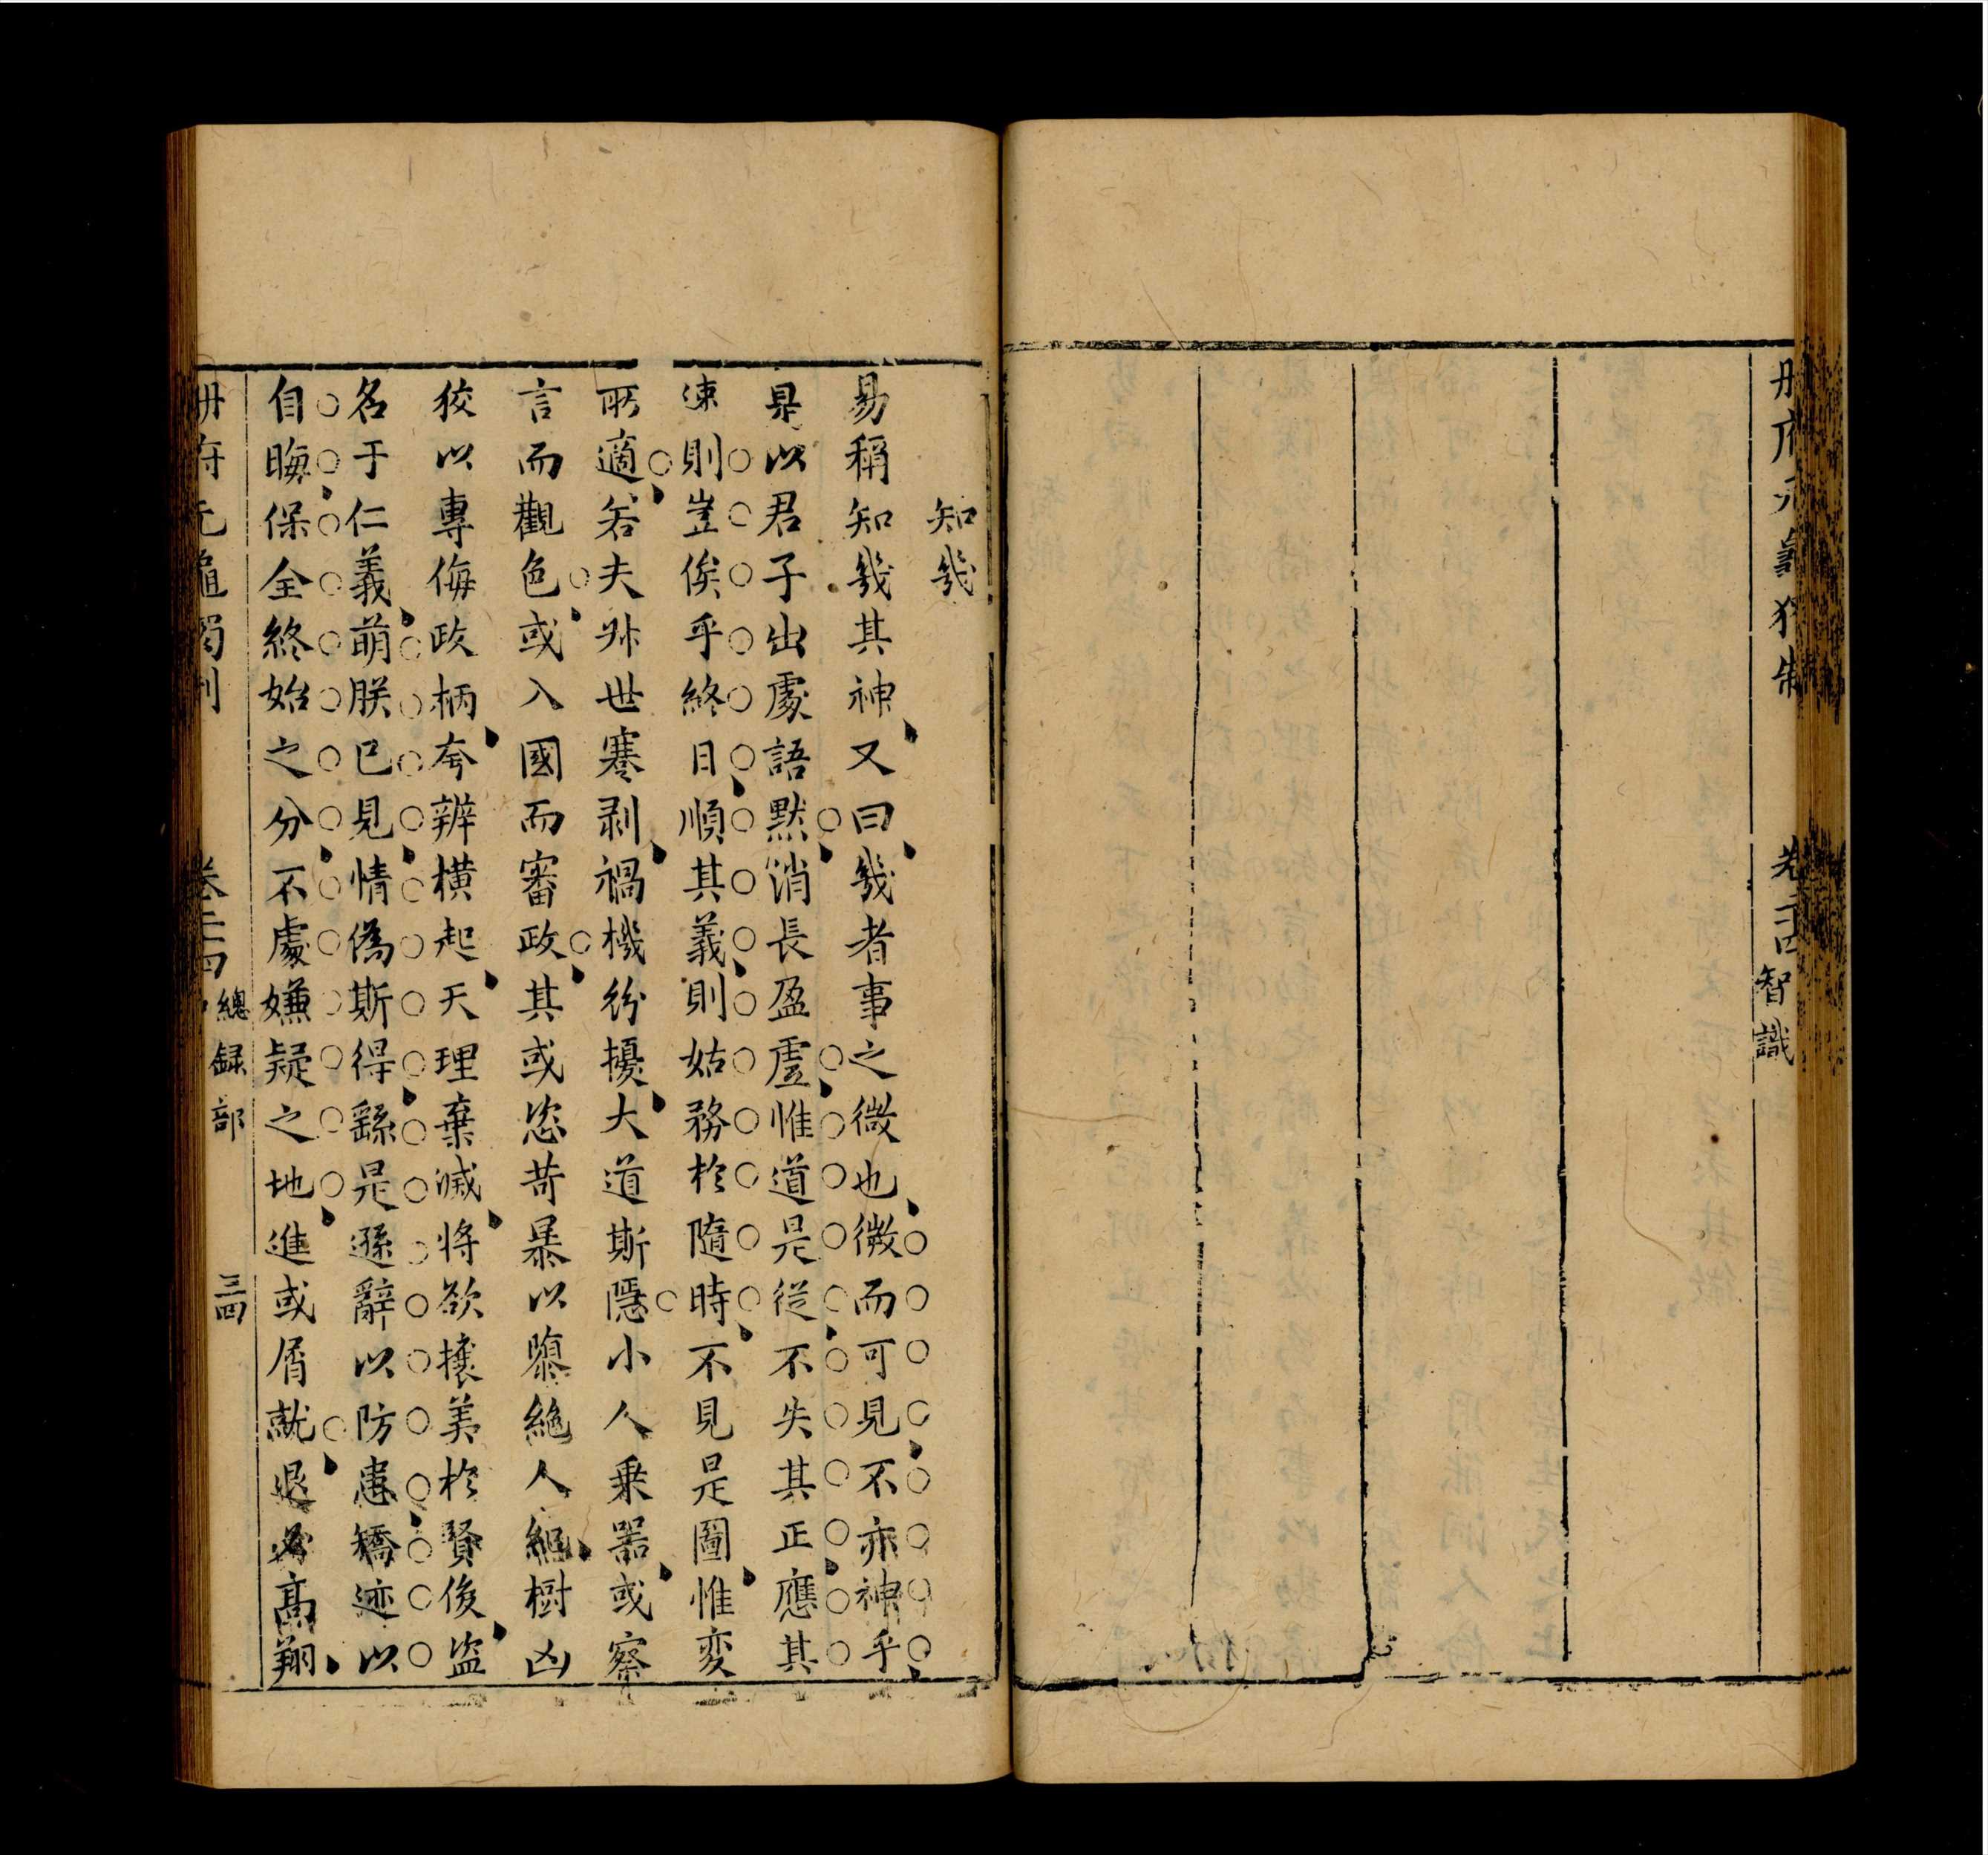 卷二四 智識
知幾
易稱知幾其神又曰幾者事之微也微而可見不亦神乎
是以君子出處語默消長盈虛惟道是從不失其正應其
速則豈俟乎終日順其義則姑務於隨時不見是圖惟変
所適若夫外世蹇剥禍機紛擾大道斯隱小人乗器或察
言而觀色或入國而審政其或恣苛暴以隳絶人綱樹凶
狡以專侮政柄夸辨横起天理棄滅将欲攘美於賢俊盗
名于仁義萌朕已見情偽斯得繇是遜辭以防患矯迹以
自晦保全終始之分不處嫌疑之地進或屑就退必髙翔
冊府元龜獨制 卷二四 總録部 三四